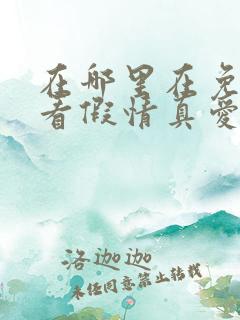 在哪里在免
看假情真爱
洛迦迦
未经同意禁止转载